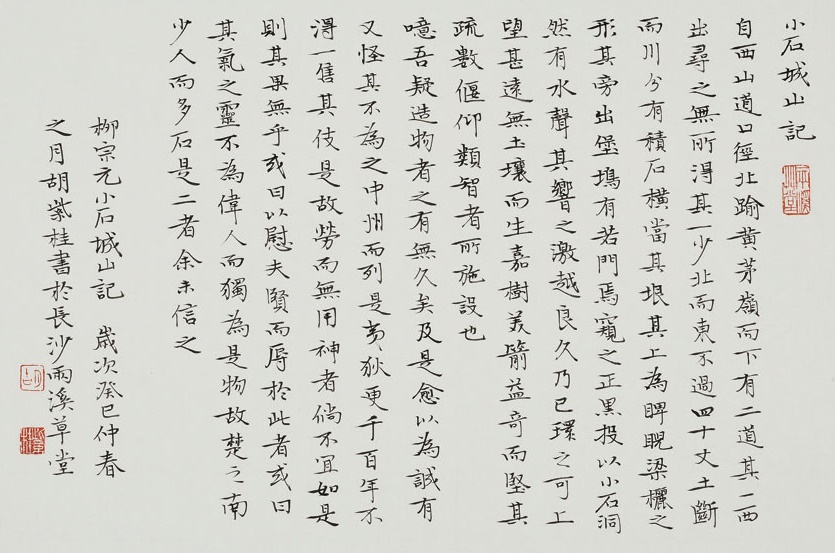 小石城山記
自西山道口徑北踰黄茅嶺而下有二道其一西
出尋之無所得其一少北而東不過四十丈土斷
而川分有積石橫當其垠其上為睥睨梁欐之
形其旁出堡塢有若門焉窺之正黑投以小石洞
然有水聲其響之激越良久乃已環之可上
望甚遠無土壤而生嘉樹美箭益奇而堅其
疏數偃仰類智者所施設也
噫吾疑造物者之有無久矣及是愈以為誠有
又怪其不為之中州而列是夷狄更千百年不
得一售其伎是故勞而無用神者倘不宜如是
則其果無乎或曰以慰夫賢而辱於此者或曰
其氣之靈不為偉人而獨為是物故楚之南
少人而多石是二者余未信之
柳宗元小石城山記 歲次癸巳仲春
之月胡紫桂書於長沙雨溪草堂